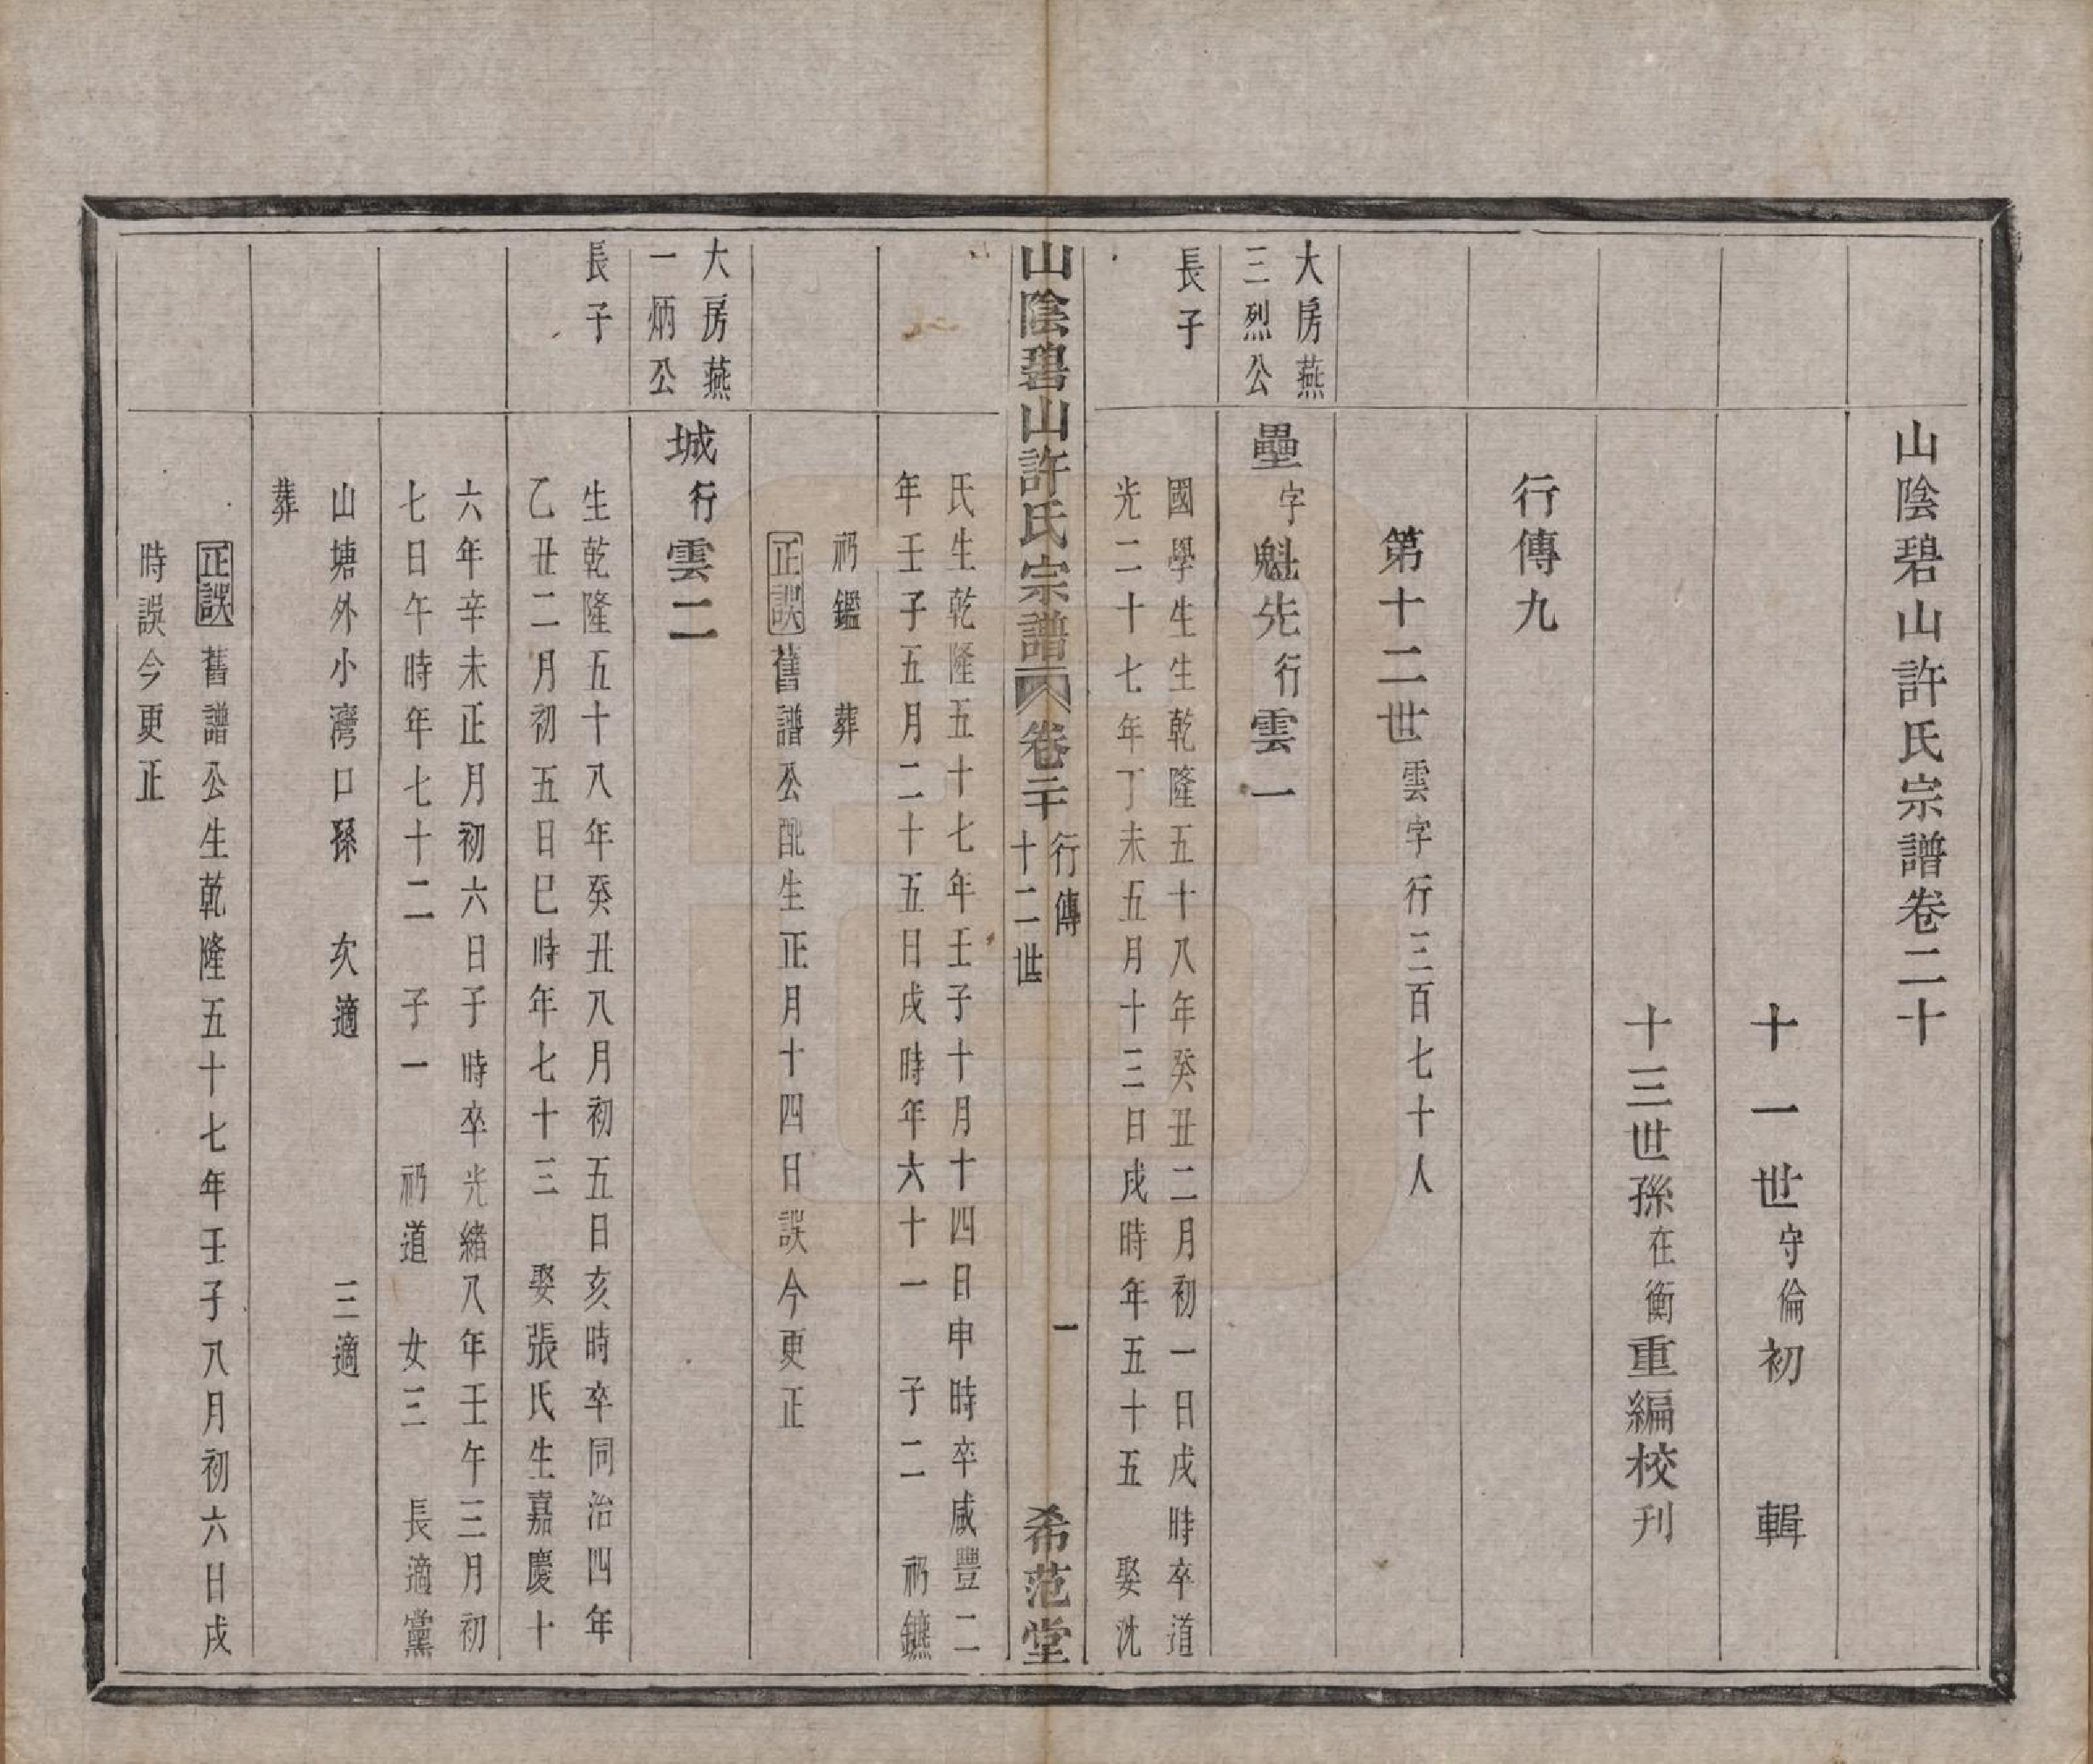 山陰碧山許氏宗譜卷二十
十一世守倫初輯
十三世孫在衡重編校刊
行傳九
第十二世雲字行三百七十人
大房燕
三烈公
長子
壘字魁先行雲一
國學生生乾隆五十八年癸丑二月初一日戌時卒道
光二十七年丁未五月十三日戌時年五十五 娶沈
山陰碧山許氏宗譜 卷二十 行傳 十二世 一 希范堂
氏生乾隆五十七年壬子十月十四日申時卒咸豐二
年壬子五月二十五日戌時年六十一 子二 礽鑣
礽鑑 葬
正誤舊譜公配生正月十四日誤今更正
大房燕
一炳公
長子
城行雲二
生乾隆五十八年癸丑八月初五日亥時卒同治四年
乙丑二月初五日巳時年七十三 娶張氏生嘉慶十
六年辛未正月初六日子時卒光緒八年壬午三月初
七日午時年七十二 子一 礽道 女三 長適黨
山塘外小灣口孫 次適 三適
葬
正誤舊譜公生乾隆五十七年壬子八月初六日戌
時誤今更正